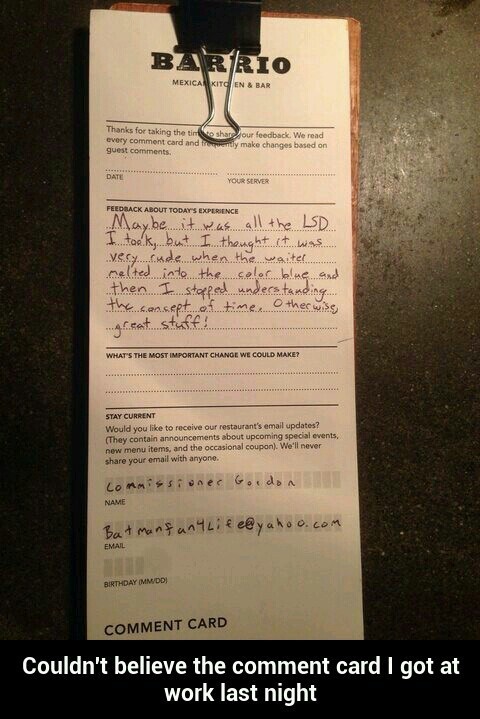 BARRIO
MEXICAN KITCHEN & BAR
Thanks for taking the time to share your feedback. We read
every comment card and frequently make changes based on
guest comments.
DATE
YOUR SERVER
FEEDBACK ABOUT TODAY'S EXPERIENCE
Maybe it was all the LSD
I took, but I thought it was
very rude when the waiter
melted into the color blue and
then I stopped understanding
the concept of time. Otherwise,
great stuff!
WHAT'S THE MOST IMPORTANT CHANGE WE COULD MAKE?
STAY CURRENT
Would you like to receive our restaurant's email updates?
(They contain announcements about upcoming special events,
new menu items, and the occasional coupon). We'll never
share your email with anyone.
Commissioner Gordon
NAME
Batmanfan4Life@yahoo.com
EMAIL
BIRTHDAY (MM/DD)
COMMENT CARD
Couldn't believe the comment card I got at
work last night